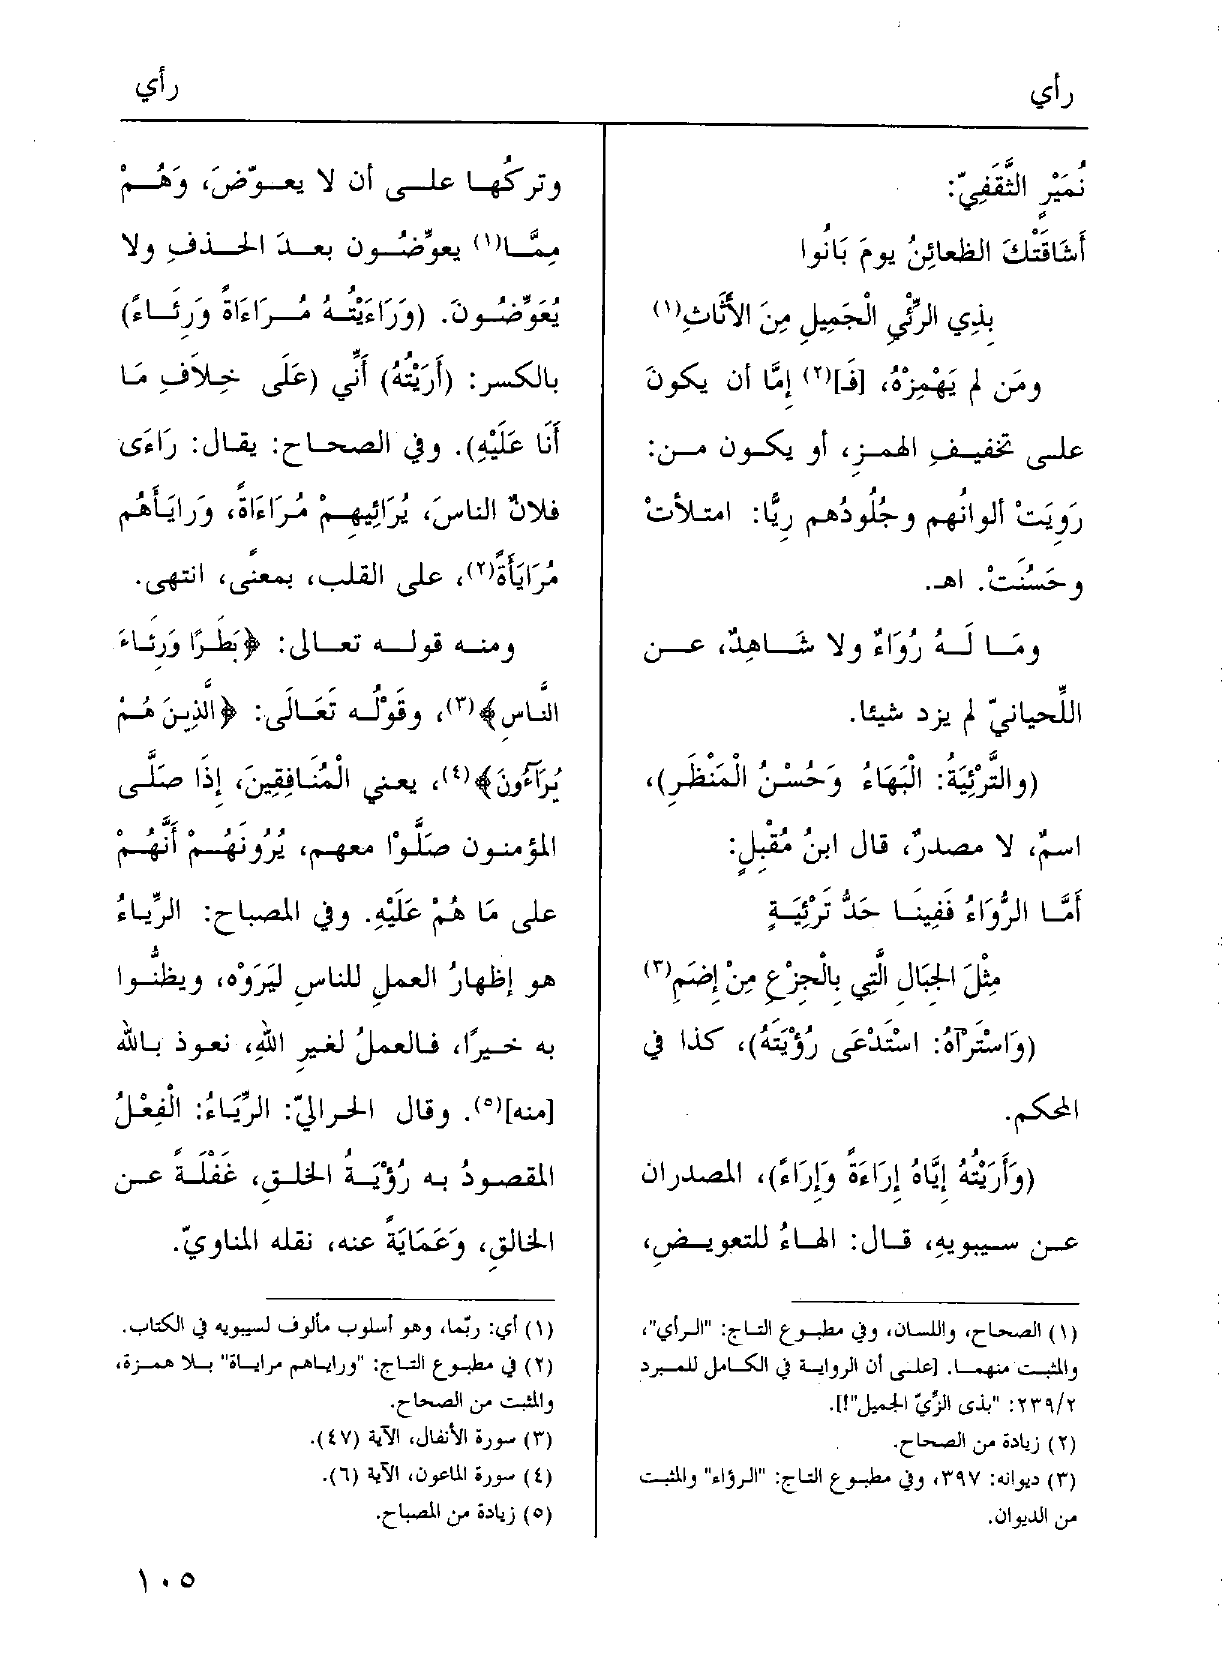 رأي
رأي
نُمَيْرٍ الثَّقَفِيّ:
أَشَاقَتْكَ الظعائِنُ يومَ بَانُوا
بِذِي الرِّئْيِ الْجَمِيلِ مِنَ الأَثَاثِ(١)
ومَن لم يَهْمِزْهُ، [فَـ](٢) إِمَّا أن يكونَ
علـى تخفيـفِ الهمـزِ، أو يكـون مـن:
رَوِيَتْ ألوانُهم وجُلُودُهم رِيًّا: امتـلأتْ
وحَسُنَتْ. اهـ.
ومَـا لَـهُ رُوَاءٌ ولا شَـاهِدٌ، عـن
اللِّحيانيّ لم يزد شيئا.
(والتَّرْئِيَةُ: الْبَهَاءُ وَحُسْنُ الْمَنْظَرِ)،
اسمٌ، لا مصدرٌ، قال ابنُ مُقْبِلٍ:
أَمَّـا الرُّوَاءُ فَفِينَـا حَدُّ تَرْئِيَـةٍ
مِثْلَ الجِبَالِ الَّتِي بِالْجِزْعِ مِنْ إِضَمِ(٣)
(وَاسْتَرْآهُ: اسْتَدْعَى رُؤْيَتَهُ)، كذا في
المحكم.
(وَأَرَيْتُهُ إِيَّاهُ إِرَاءَةً وَإِرَاءً)، المصدران
عـن سـيبويهِ، قـال: الهـاءُ للتعويـضِ،
وتركُهـا علـى أن لا يعـوّضَ، وَهُـمْ
مِمَّـا(١) يعوِّضُـون بعـدَ الحـذفِ ولا
يُعَوِّضُـونَ. (وَرَاءَيْتُـهُ مُـرَاءَاةً وَرِئَـاءً)
بالكسر: (أَرَيْتُهُ) أَنِّي (عَلَى خِلَافِ مَا
أَنَا عَلَيْهِ). وفي الصحـاح: يقـال: رَاءَى
فلانٌ الناسَ، يُرَائِيهِـمْ مُرَاءَاةً، وَرايَأَهُم
مُرَايَأَةً(٢)، على القلب، بمعنًى، انتهى.
ومنـه قولـه تعـالى: ﴿بَطَرًا وَرِئَـاءَ
النَّاسِ﴾(٣)، وقَوْلُـه تَعَـالَى: ﴿الَّذِيـنَ هُـمْ
يُرَآءُونَ﴾(٤)، يعـني الْمُنَافِقِينَ، إِذَا صَلَّـى
المؤمنـون صَلَّـوْا معهـم، يُرُونَهُـمْ أَنَّهُـمْ
على مَا هُمْ عَلَيْهِ. وفي المصباح: الرِّيـاءُ
هـو إظهارُ العملِ للناسِ لِيَرَوْه، ويظنُّـوا
به خـيرًا، فـالعملُ لغيرِ اللهِ، نعوذ بـالله
[منه](٥). وقال الحراليّ: الرِّيَـاءُ: الْفِعْلُ
المقصودُ بـه رُؤْيَـةُ الخلـقِ، غَفْلَـةً عـن
الخالقِ، وَعَمَايَةً عنه، نقله المناويّ.
(١) الصحاح، واللسان، وفي مطبوع التاج: "الرأي"،
والمثبـت منهمـا. [علـى أن الروايـة في الكـامل للمبرد
٢٣٩/٢: "بذى الزِّيّ الجميل"!].
(٢) زيادة من الصحاح.
(٣) ديوانه: ٣٩٧، وفي مطبوع التاج: "الرؤاء" والمثبت
من الديوان.
(١) أي: ربّما، وهو أسلوب مألوف لسيبويه في الكتاب.
(٢) في مطبوع التاج: "وراياهم مراياة" بلا همزة،
والمثبت من الصحاح.
(٣) سورة الأنفال، الآية (٤٧).
(٤) سورة الماعون، الآية (٦).
(٥) زيادة من المصباح.
١٠٥